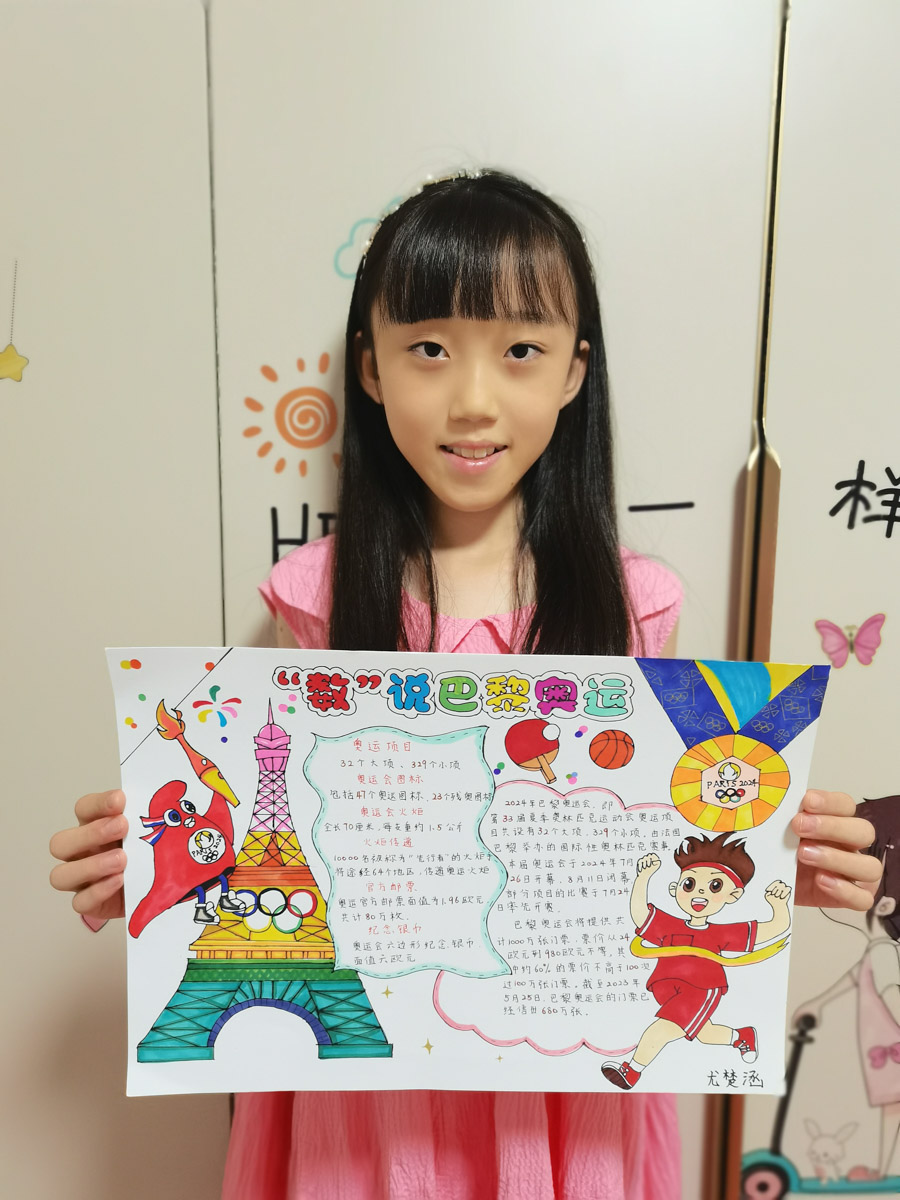 HE
一
样
“数”说巴黎奥运
PARIS 2024
奥运项目
32个大项、329个小项
奥运会图标
包括47个奥运图标、23个残奥图标
奥运会火炬
全长70厘米,每支重约1.5公斤
火炬传递
10000名被称为“先行者”的火炬手
将途经64个地区,传递奥运火炬
官方邮票
奥运官方邮票面值为1.96欧元
共计80万枚.
纪念银币
奥运会六边形纪念银币,
面值六欧元
PARIS 2024
2024年巴黎奥运会,即
第33届夏季奥林匹克运动会奥运项
目共设有32个大项,329个小项,由法国
巴黎举办的国际性奥林匹克赛事
本届奥运会于2024年7月
26日开幕,8月11日闭幕
部分项目的比赛于7月24
日率先开赛.
巴黎奥运会将提供共
计1000万张门票,票价从24
欧元到980欧元不等,其
中约60%的票价不高于100欧
过100万张门票.截至2023年
5月25日,巴黎奥运会的门票已
经售出680万张.
尤楚涵